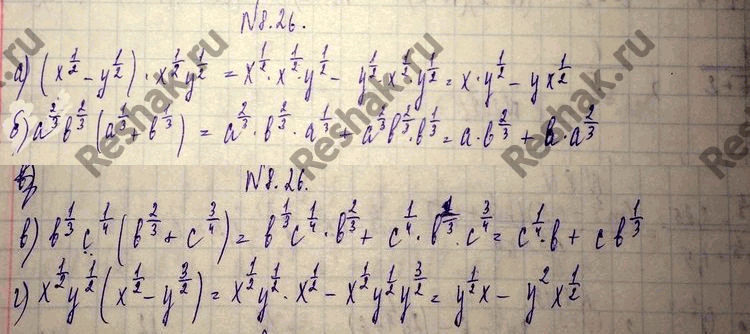 №8.26.
а) (x^{1/2} - y^{1/2}) · x^{1/2}y^{1/2} = x^{1/2} · x^{1/2}y^{1/2} - y^{1/2} · x^{1/2}y^{1/2} = x · y^{1/2} - yx^{1/2}
б) a^{2/3}b^{2/3}(a^{1/3} + b^{1/3}) = a^{2/3} · b^{2/3} · a^{1/3} + a^{2/3}b^{2/3} · b^{1/3} = a · b^{2/3} + b · a^{2/3}
№8.26.
в) b^{1/3}c^{1/4}(b^{2/3} + c^{3/4}) = b^{1/3}c^{1/4} · b^{2/3} + c^{1/4} · b^{1/3} · c^{3/4} = c^{1/4} · b + cb^{1/3}
г) x^{1/2}y^{1/2}(x^{1/2} - y^{3/2}) = x^{1/2}y^{1/2} · x^{1/2} - x^{1/2}y^{1/2}y^{3/2} = y^{1/2}x - y^{2}x^{1/2}
Reshak.ru
Reshak.ru
Reshak.ru
Reshak.ru